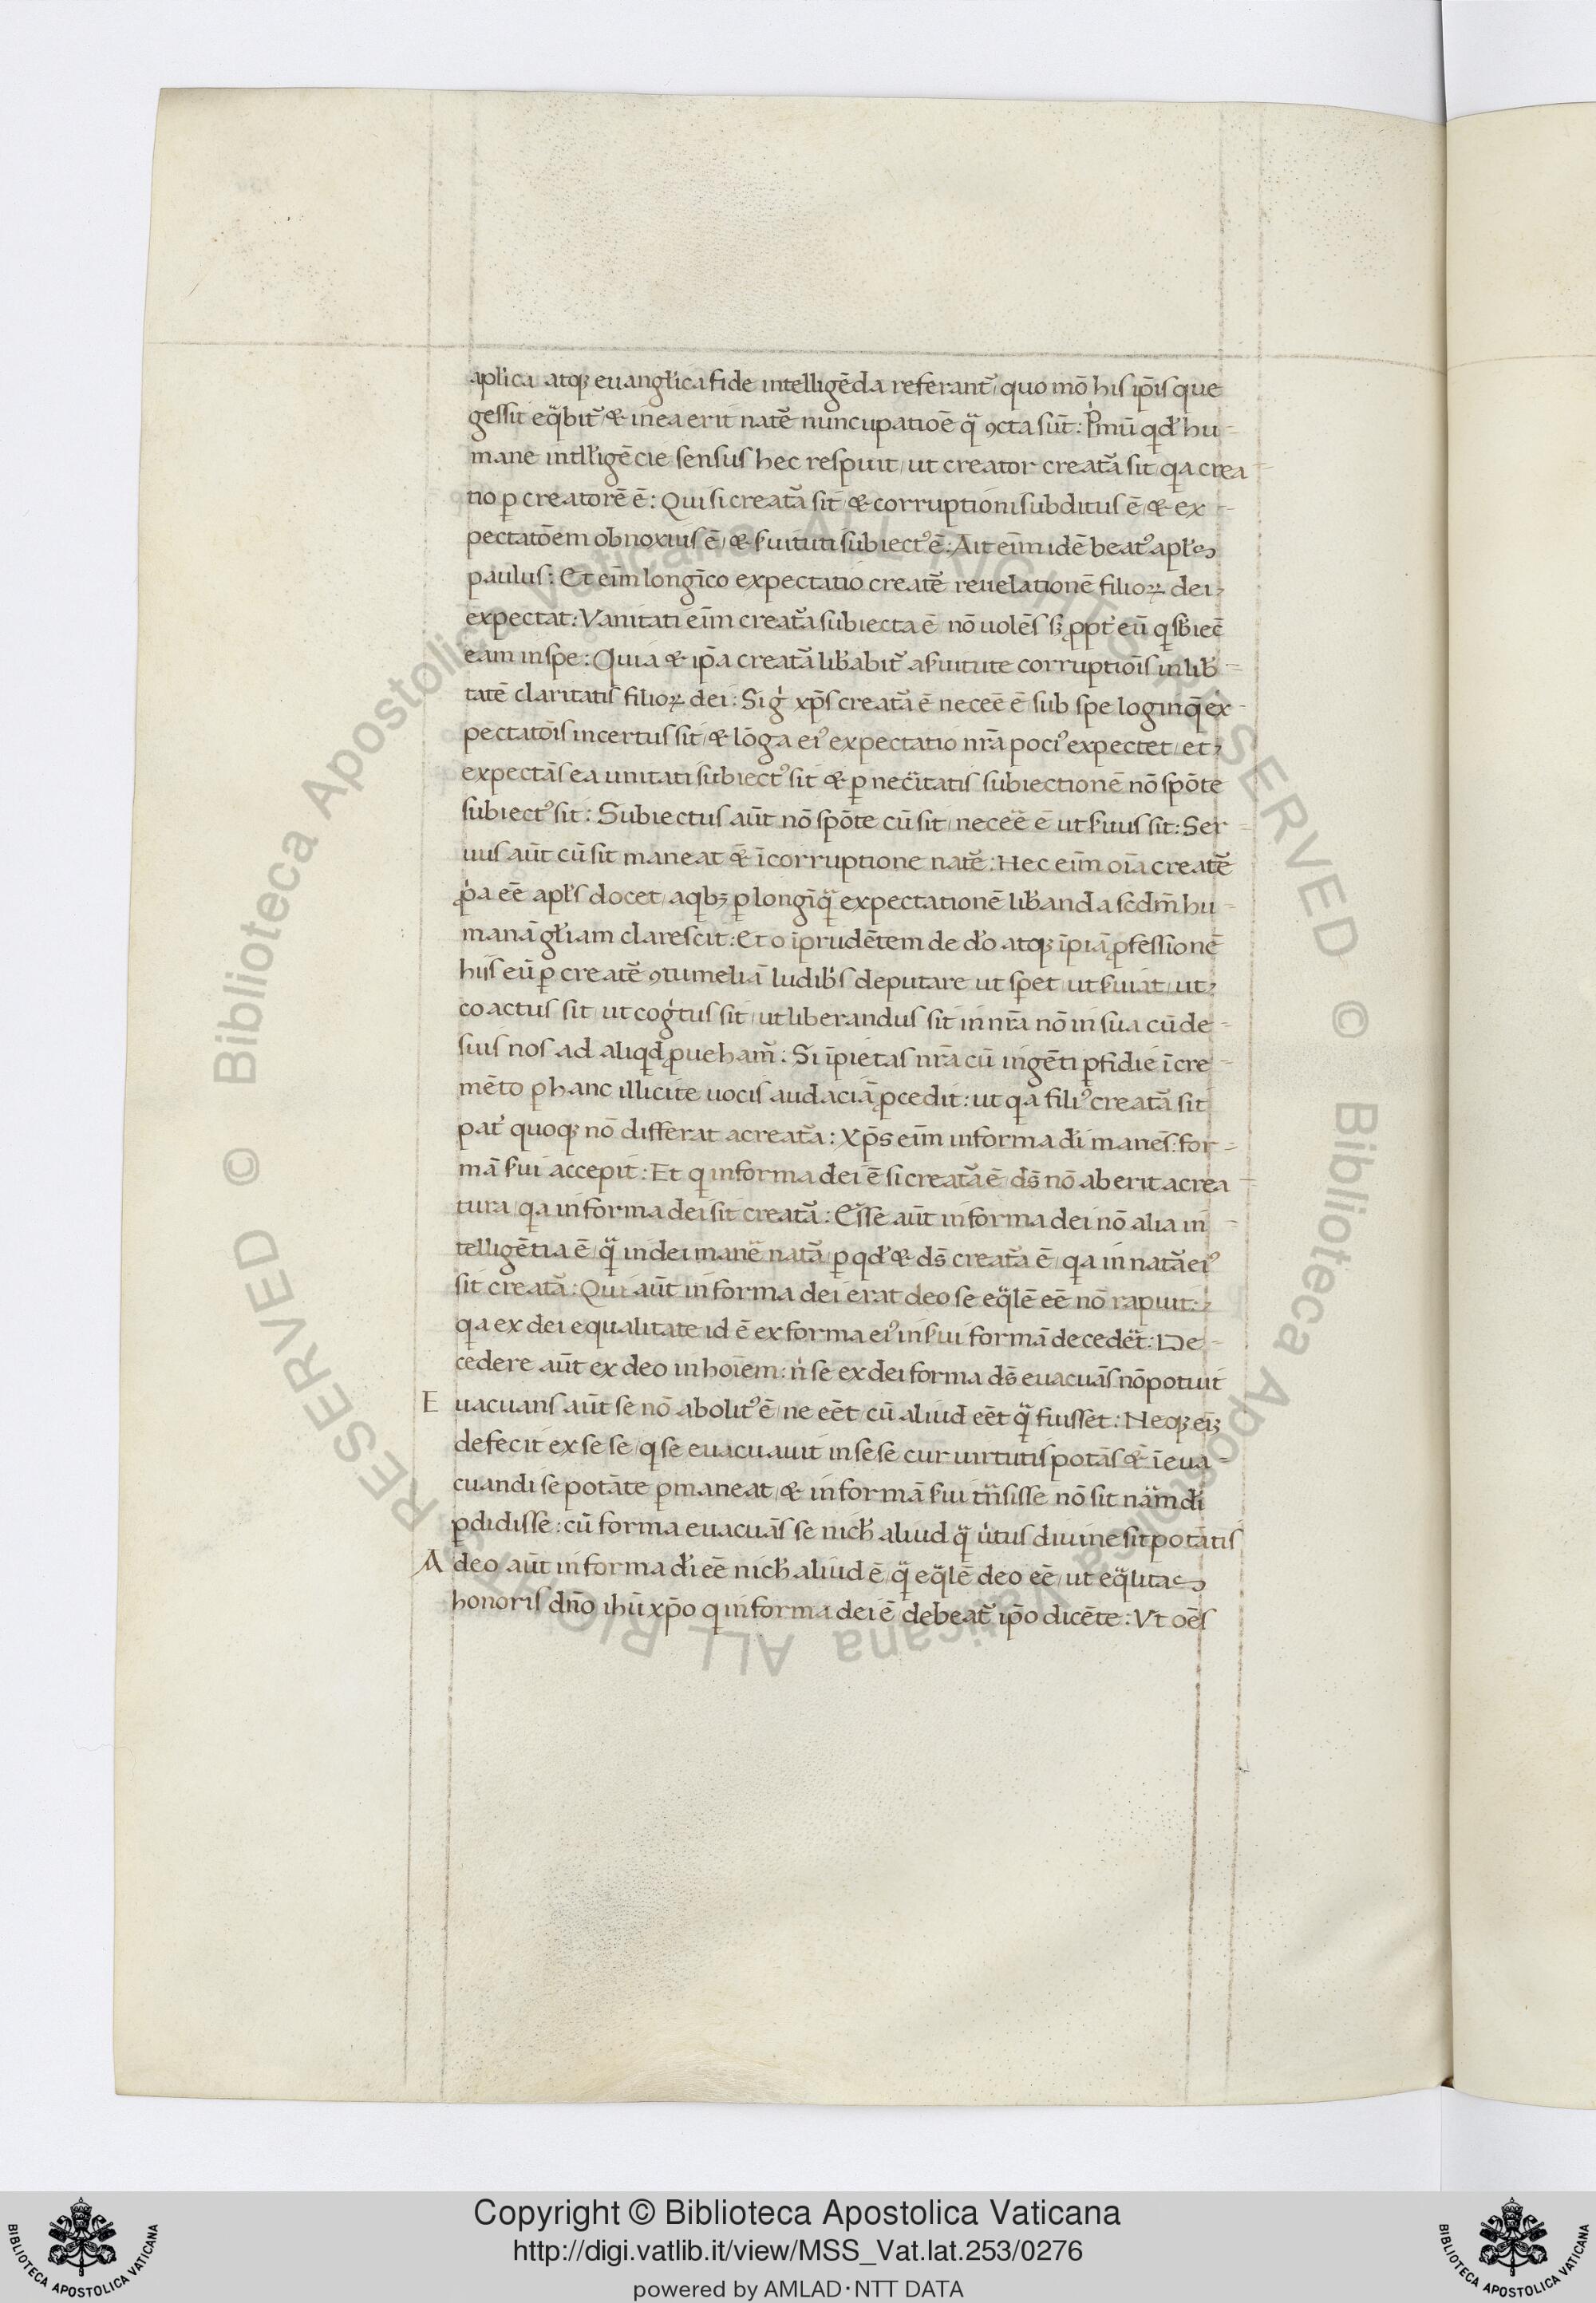 apl'ica atq; euangl'ica fide intelligēda referant᷑ quo mō his ip̄is que
gessit eq̈bit᷑ & in ea erit nat᷑e nuncupatiōē q̈ ꝯcta sūt: P̍mū qd' hu-
mane intll'igēcie sensus hec respuit ut creator creat᷑a sit qa crea
tio ꝑ creatorē ē: Qui si creat᷑a sit & corruptioni subditus ē & ex-
pectatōem obnoxius ē & s'uituti subiect᷒ ē: Ait eīm idē beat᷒ apl'es
paulus: Et eīm longīco expectatio creat᷑e reuelationē filioꝝ dei
expectat: Vanitati eīm creat᷑a subiecta ē nō uolēs sꝫ ꝓpt' eū q sb'iec̄
eam in spe: Quia & ip̄a creat᷑a lib'abit᷑ a s'uitute corruptiōis in lib'-
tatē claritatis filioꝝ dei: Si g̍ xp̄s creat᷑a ē neceē ē sub spe loginq̄ ex-
pectatōis incertus sit & lōga ei᷒ expectatio nr̄a poci᷒ expectet et
expectās ea unitati subiect᷒ sit & ꝑ nec̄itatis subiectionē nō spōte
subiect᷒ sit: Subiectus aūt nō spōte cū sit neceē ē ut s'uus sit: Ser-
uus aūt cū sit maneat & ī corruptione nat᷑e: Hec eīm oīa creat᷑e
p̍a eē apl's docet aqbꝫ ꝑ longīq̈ expectationē lib'anda scdm̄ hu-
manā gl'iam clarescit: Et o īprudētem de d'o atq; īpiā ꝓfessionē
hiis eū ꝑ creat᷑e ꝯtumeliā ludib's deputare ut sp̄et ut s'uiat ut
coactus sit ut cog̍tus sit ut liberandus sit in nr̄a nō in sua cū de-
suis nos ad aliqd ꝓueham᷑: Si īpietas nr̄a cū ingēti ꝑfidie īcre-
mēto ꝑ hanc illicite uocis audaciā ꝓcedit: ut qa fili᷒ creat᷑a sit
pat' quoq; nō differat a creat᷑a: Xp̄s eīm in forma d'i manēs: for-
mā s'ui accepit: Et q in forma dei ē si creat᷑a ē ds̄ nō aberit a crea
tura qa in forma dei sit creat᷑a: Esse aūt in forma dei nō alia in-
tell'igētia ē q̈ in dei manē nat᷑a ꝑ qd' & ds̄ creat᷑a ē qa in nat᷑a ei᷒
sit creat᷑a: Qui aūt in forma dei erat deo se eq̈lē eē nō rapuit:
qa ex dei equalitate id ē ex forma ei᷒ in s'ui formā decedēt: De-
cedere aūt ex deo in hoīem: n̍ se ex dei forma ds̄ euacuās nō potuit
E uacuans aūt se nō abolit᷒ ē ne eēt cū aliud eēt q̈ fuisset: Neq; eīꝫ
defecit ex se se q se euacuauit in sese cur uirtutis potās & ī eua-
cuandi se potāte ꝑmaneat & in formā s'ui tn̄sisse nō sit nām d'i
ꝑdidisse: cū forma euacuās se nich' aliud q̈ u̍tus diuine sit potātis
A deo aūt in forma d'i eē nich' aliud ē q̈ eq̈lē deo eē ut eq̈litas
honoris dn̄o ihū xp̄o q in forma dei ē debeat᷑ ip̄o dicēte: Vt oēs
© Biblioteca Apostolica Vaticana ALL RIGHTS RESERVED © Biblioteca Apostolica Vaticana ALL RIGHTS RESERVED
Copyright © Biblioteca Apostolica Vaticana
http://digi.vatlib.it/view/MSS_Vat.lat.253/0276
powered by AMLAD·NTT DATA
BIBLIOTECA APOSTOLICA VATICANA
BIBLIOTECA APOSTOLICA VATICANA